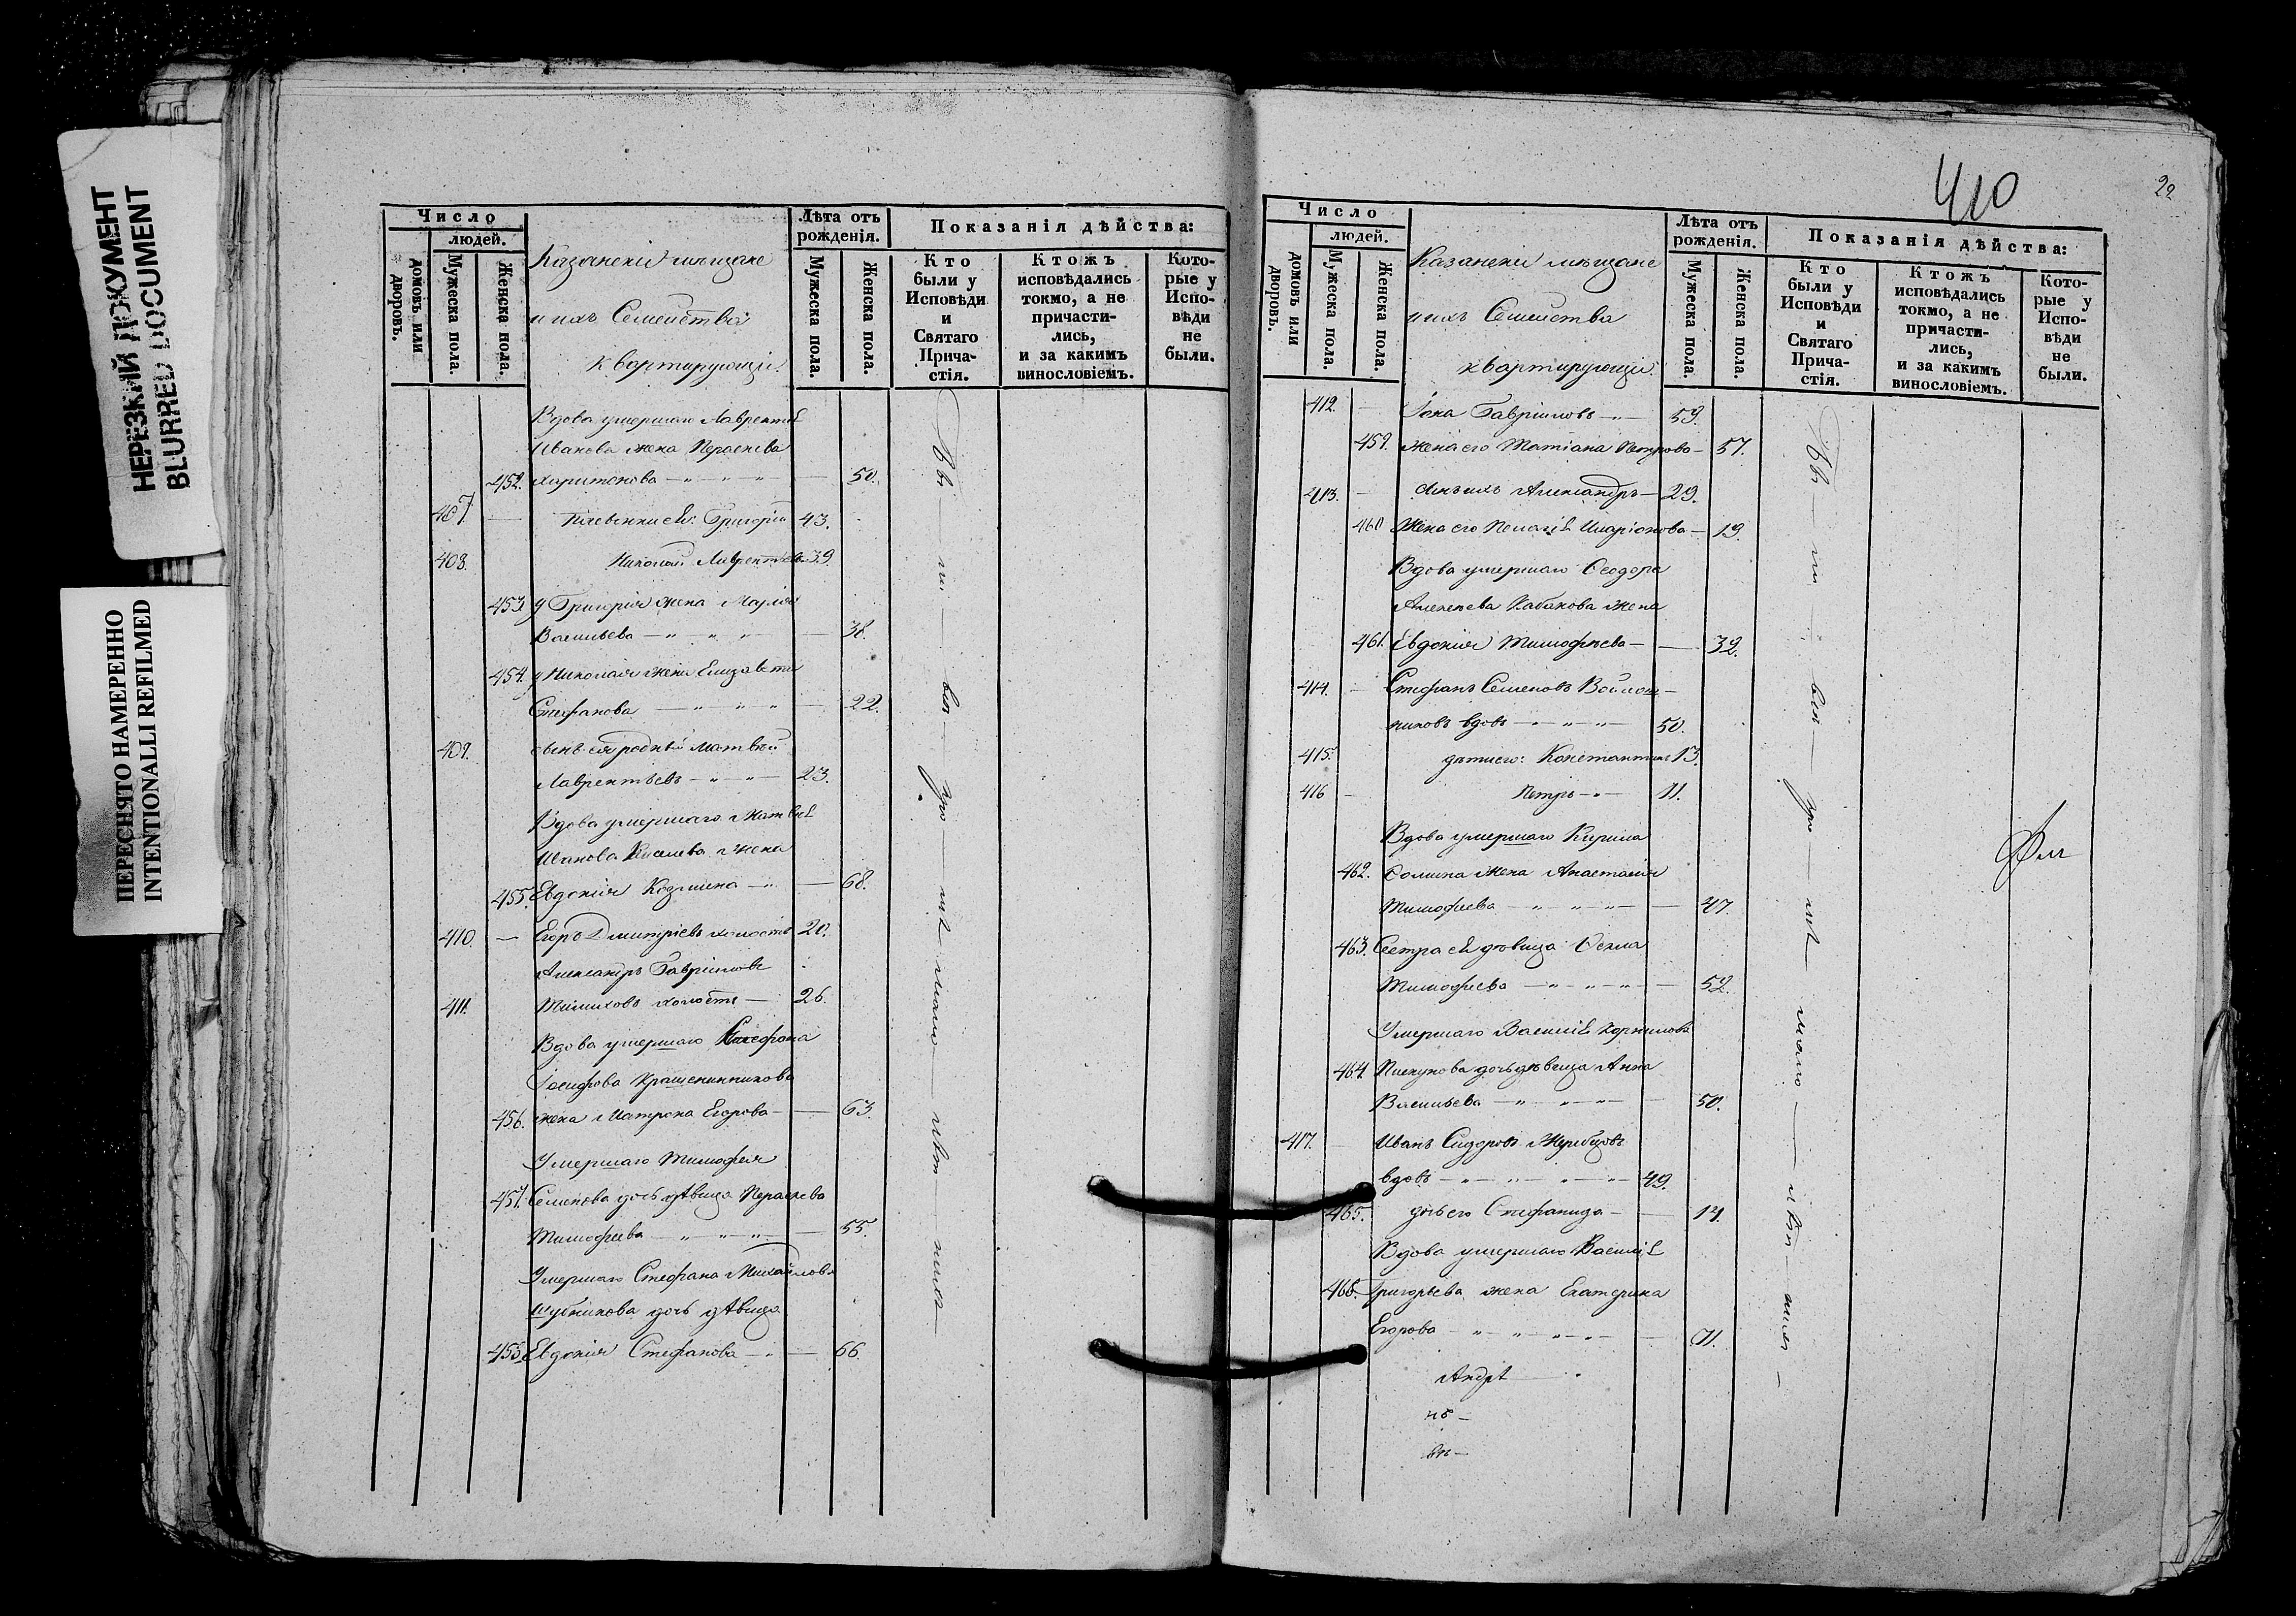 НЕРЕЗКИЙ ДОКУМЕНТ
BLURRED DOCUMENT
ПЕРЕСНЯТО НАМЕРЕННО
INTENTIONALLI REFILMED
Число
людей.
домовъ или дворовъ.
Мужеска пола.
Женска пола.
Казанскіи мѣщане
и ихъ Семейства
квартирующіи
Лѣта отъ
рожденія.
Мужеска пола.
Женска пола.
Показанія дѣйства:
Кто
были у
Исповѣди
и
Святаго
Прича-
стія.
Ктожъ
исповѣдались
токмо, а не
причасти-
лись,
и за какимъ
винословіемъ.
Кото-
рые у
Испо-
вѣди
не
были.
Вдова умершаго Лаврентія
Иванова жена Параскева
452. Харитонова — 50.
407. — Григорій 43.
408. Николай Лаврентьевы 39.
453. у Григорія жена Марія
Васильева — 38.
454. у Николая жена Елизавета
Стефанова — 22.
409. сынъ ея родный Матвѣй
Лаврентьевъ — 23.
Вдова умершаго Матвѣя
Иванова Киселева жена
455. Евдокія Козмина — 68.
410. — Егоръ Дмитріевъ холостъ 20.
Александръ Гавріиловъ
411. холостъ — 26.
Вдова умершаго Стефана
Іосифова Крашенинникова
456. жена Матрона Егорова — 63.
Умершаго Тимофея
457. Семенова дочь дѣвица Параскева
Тимофеева — 55.
Умершаго Стефана Михайлова
Шубникова дочь дѣвица
458. Евдокія Стефанова — 66.
410
22
Число
людей.
домовъ или дворовъ.
Мужеска пола.
Женска пола.
Казанскіи мѣщане
и ихъ Семейства
квартирующіи
Лѣта отъ
рожденія.
Мужеска пола.
Женска пола.
Показанія дѣйства:
Кто
были у
Исповѣди
и
Святаго
Прича-
стія.
Ктожъ
исповѣдались
токмо, а не
причасти-
лись,
и за какимъ
винословіемъ.
Кото-
рые у
Испо-
вѣди
не
были.
412. — Іона Гавріиловъ — 59.
459. Жена его Татіана Петрова — 57.
413. — сынъ ихъ Александръ — 29.
460 Жена его Пелагія Иларіонова — 19.
Вдова умершаго Ѳеодора
Алексеева Кабакова жена
461. Евдокія Тимофѣева — 32.
414. — Стефанъ Семеновъ Войлош-
никовъ вдовъ — 50.
415. дѣти его: Константинъ 13.
416 — Петръ — 11.
Вдова умершаго Кирила
462. Ѳомина жена Анастасія
Тимофеева — 47.
463. Сестра ея дѣвица Ѳекла
Тимофеева — 52.
Умершаго Василія Корнилова
464. Пискунова дочь дѣвица Анна
Васильева — 50.
417. Иванъ Сидоровъ Жеребцовъ
вдовъ — 49.
465. дочь его Стефанида — 14.
Вдова умершаго Василія
466. Григорьева жена Екатерина
Егорова — 71.